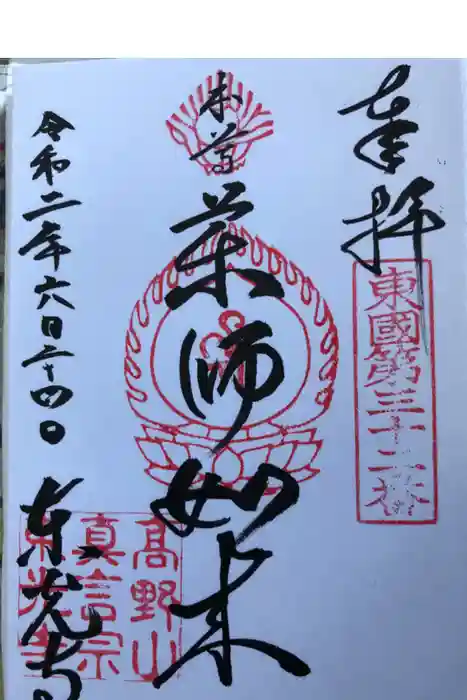 奉拝
東國第三十二番
本尊
薬師如来
高野山
真言宗
東光寺
令和二年六月二十四日
東光寺